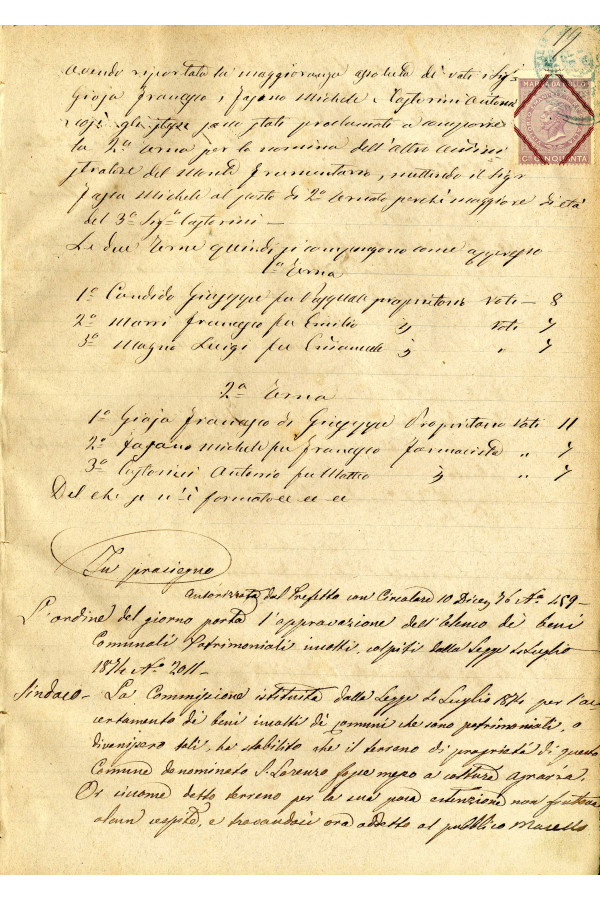 avendo riportata la maggioranza assoluta di voti i Sig.ri
Gioja Francesco, Fasano Michele Castorini Antonio
così gli stessi sono stati proclamati a comporre
la 2a terna per la nomina dell'altro ammini
stratore del Monte Frumentario, mettendo il Sigr
Fasano Michele al posto di 2o ternato perché maggiore di età
del 3o Sigr Castorini —
Le due terne quindi si compongono come appresso
1a Terna
1o Candido Giuseppe fu Pasquale proprietario Voti — 8
2o Marri Francesco fu Emilio " Voti 7
3o Magno Luigi fu " " 7
2a Terna
1o Gioja Francesco di Giuseppe Proprietario Voti 11
2o Fasano Michele fu Francesco Farmacista " 7
3o Castorini Antonio fu Matteo " " 7
Del che se n'è formato ee ee ee
In prosieguo
Autorizzata dal Prefetto con Circolare 10 Dicem 76 No 459 —
L'ordine del giorno porta l'approvazione dell'Elenco dei beni
Comunali Patrimoniali incolti, colpiti dalla Legge 4 Luglio
1874 No 2011 —
Sindaco — La Commissione istituita dalla Legge 4 Luglio 1874 per l'ac
certamento di beni incolti di comuni che sono patrimoniali, o
divenissero tali, ha stabilito che il terreno di proprietà di questo
Comune denominato S. Lorenzo fosse messo a coltura agraria.
Or siccome detto terreno per la sua poca estenzione non frutterebbe
alcun cespite, e trovandosi ora addetto al pubblico Macello
MARCA DA BOLLO
CMI CINQUANTA